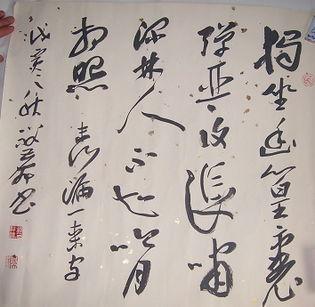 獨坐幽篁裏
彈琴復長嘯
深林人不知明月
相照 漏一來字
戊寅之秋 書